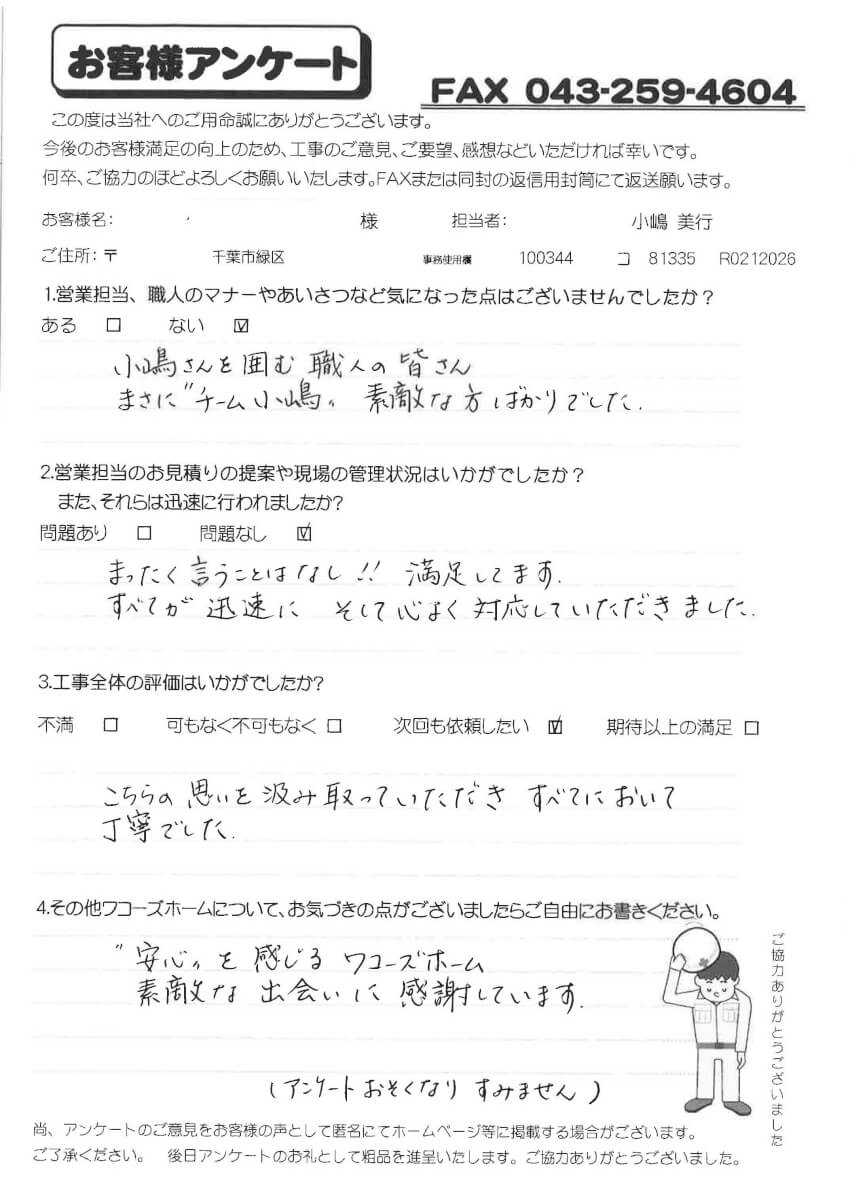 お客様アンケート
FAX 043-259-4604
この度は当社へのご用命誠にありがとうございます。
今後のお客様満足の向上のため、工事のご意見、ご要望、感想などいただければ幸いです。
何卒、ご協力のほどよろしくお願いいたします。FAXまたは同封の返信用封筒にて返送願います。
お客様名: 様 担当者: 小嶋 美行
ご住所:〒 千葉市緑区 事務使用欄 100344 コ 81335 R0212026
1.営業担当、職人のマナーやあいさつなど気になった点はございませんでしたか?
ある □ ない ☑
小嶋さんを囲む職人の皆さん
まさに"チーム小嶋〟 素敵な方ばかりでした.
2.営業担当のお見積りの提案や現場の管理状況はいかがでしたか?
また、それらは迅速に行われましたか?
問題あり □ 問題なし ☑
まったく言うことはなし!! 満足してます.
すべてが迅速に そして心よく対応していただきました.
3.工事全体の評価はいかがでしたか?
不満 □ 可もなく不可もなく □ 次回も依頼したい ☑ 期待以上の満足 □
こちらの思いを汲み取っていただき すべてにおいて
丁寧でした.
4.その他ワコーズホームについて、お気づきの点がございましたらご自由にお書きください。
"安心〟を感じる ワコーズホーム
素敵な出会いに感謝しています.
(アンケートおそくなり すみません)
ご協力ありがとうございました
尚、アンケートのご意見をお客様の声として匿名にてホームページ等に掲載する場合がございます。
ご了承ください。 後日アンケートのお礼として粗品を進呈いたします。ご協力ありがとうございました。